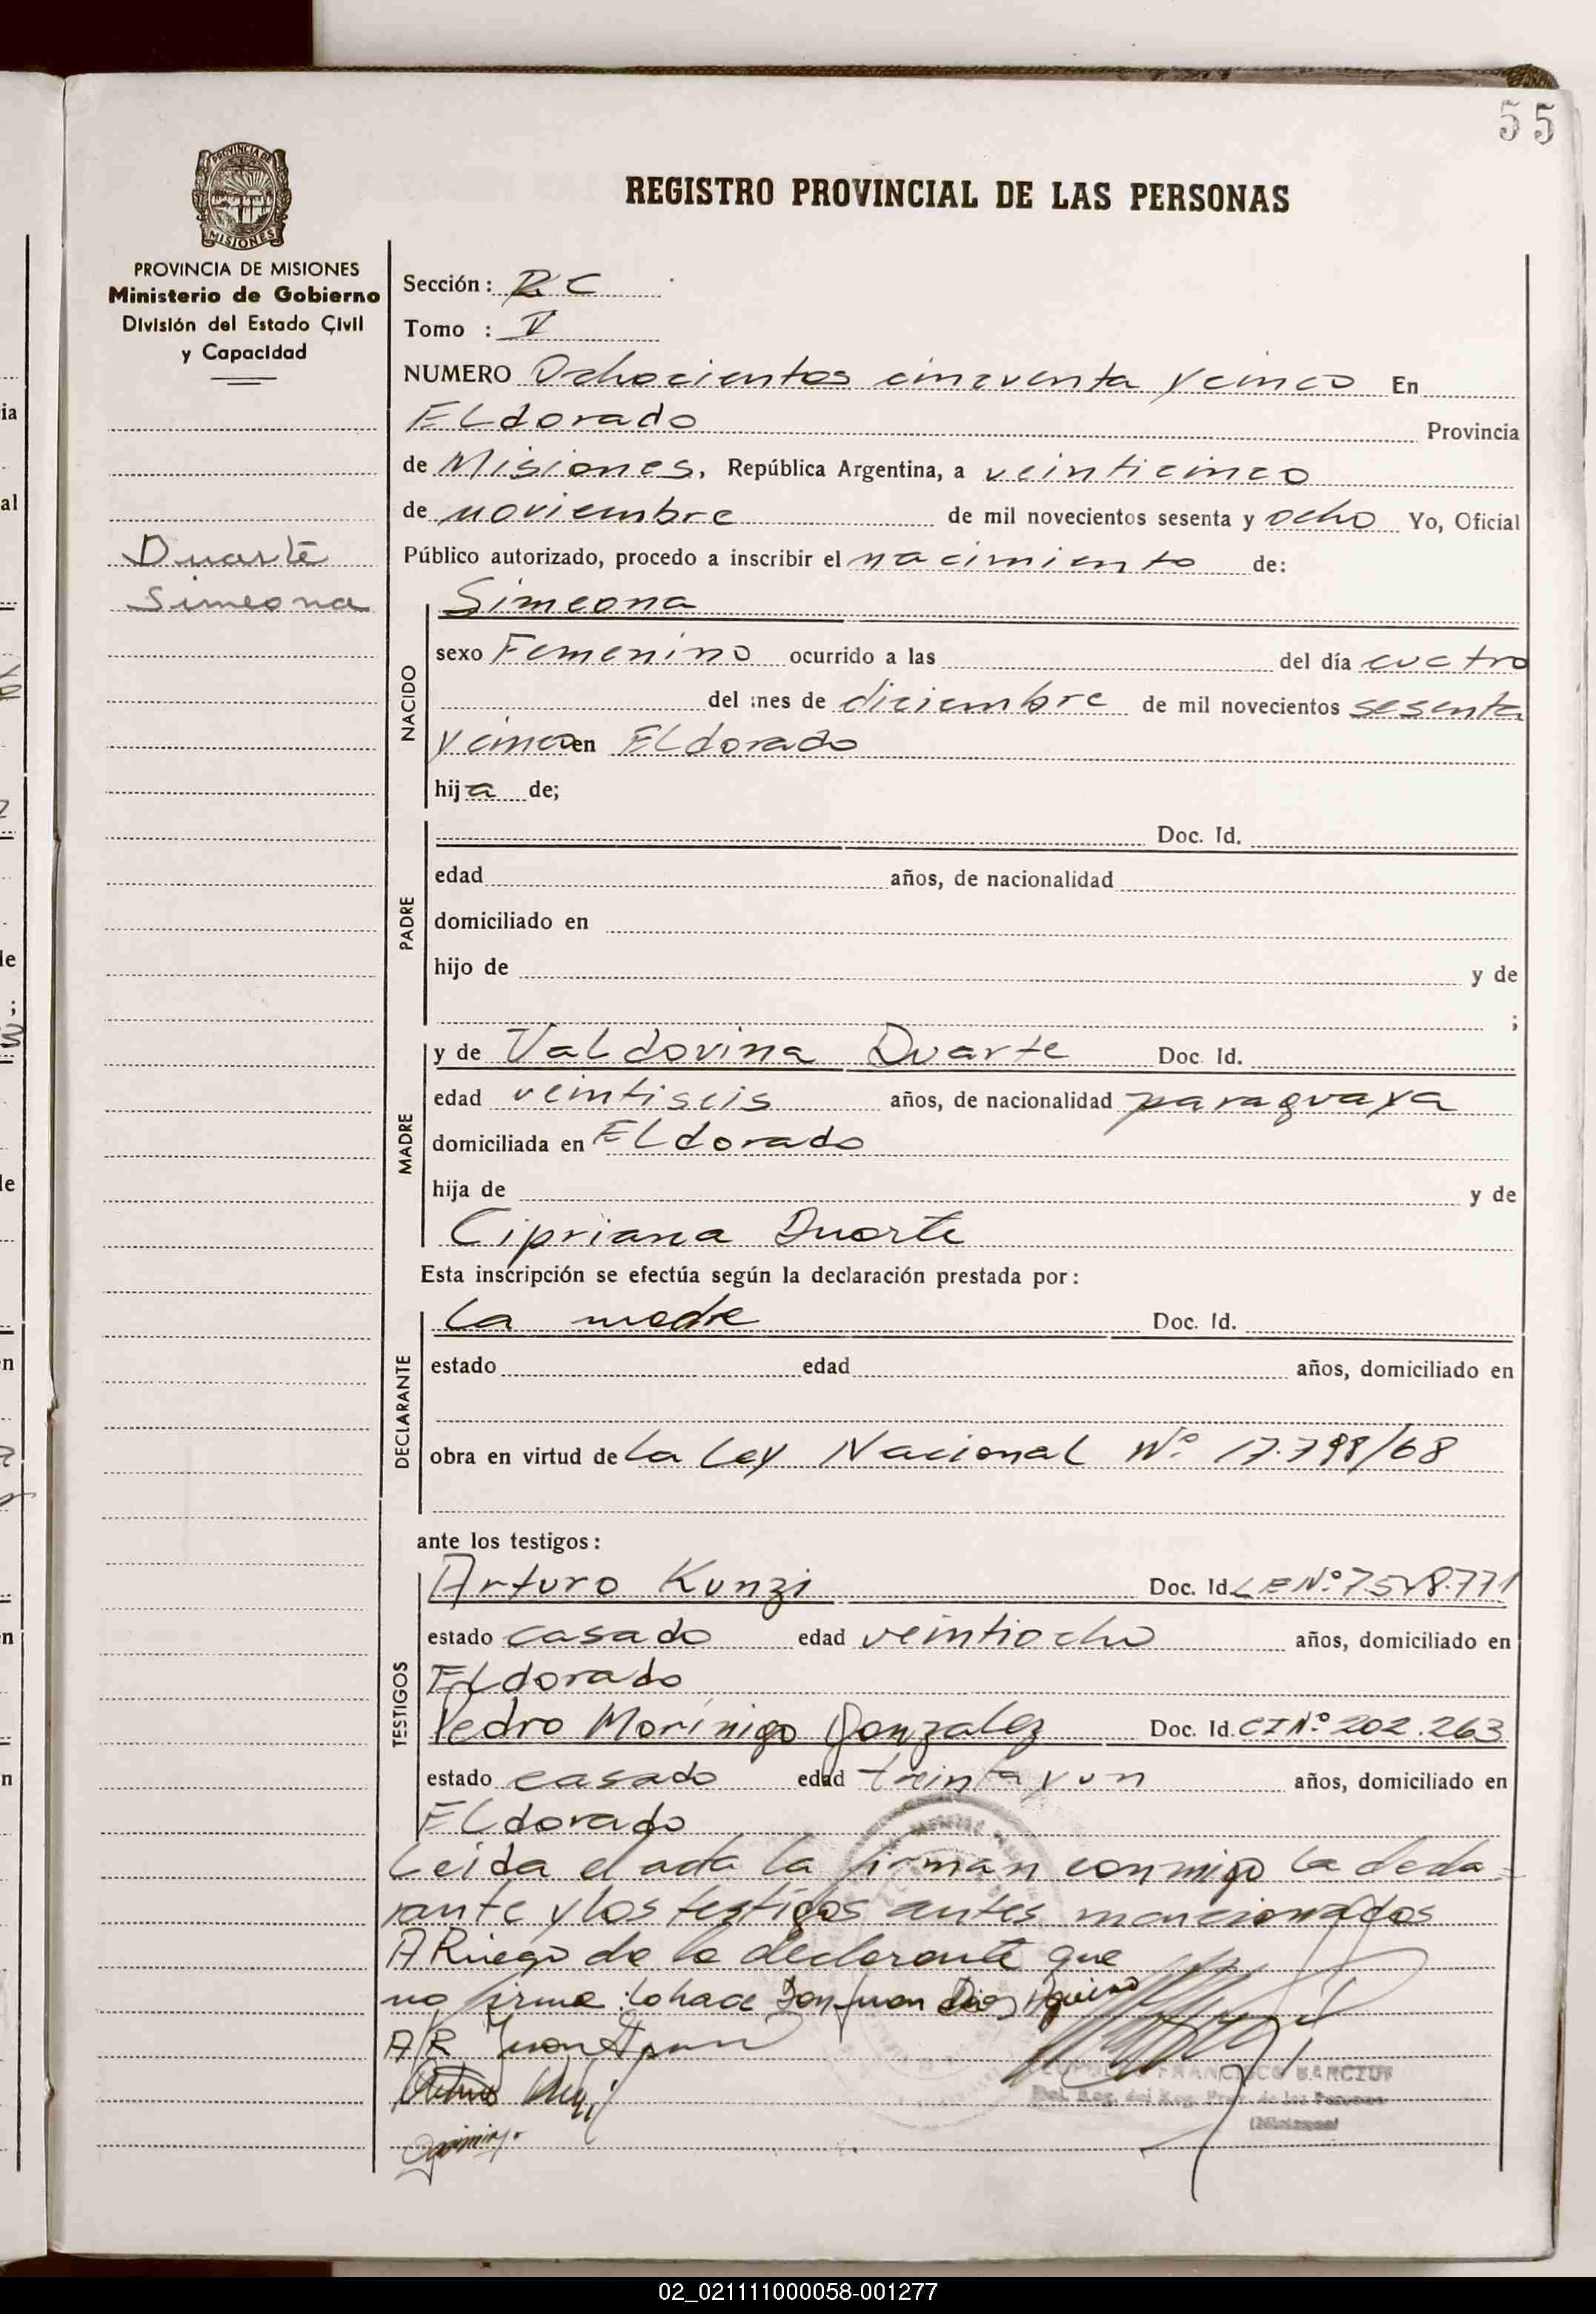 55
REGISTRO PROVINCIAL DE LAS PERSONAS
PROVINCIA DE MISIONES
PROVINCIA DE MISIONES
Ministerio de Gobierno
División del Estado Çivil
y Capacidad
Duarte
Simeona
Sección: R C
Tomo : V
NUMERO Ochocientos cincuenta y cinco En
ELdorado Provincia
de Misiones, República Argentina, a veinticinco
de noviembre de mil novecientos sesenta y ocho Yo, Oficial
Público autorizado, procedo a inscribir el nacimiento de:
NACIDO
Simeona
sexo Femenino ocurrido a las del día cuatro
del mes de diciembre de mil novecientos sesenta
y cinco en ELdorado
hija de;
PADRE
Doc. Id.
edad años, de nacionalidad
domiciliado en
hijo de y de
;
MADRE
y de VaLdovina Duarte Doc. Id.
edad veintiseis años, de nacionalidad paraguaya
domiciliada en ELdorado
hija de y de
Cipriana Duarte
Esta inscripción se efectúa según la declaración prestada por:
DECLARANTE
La madre Doc. Id.
estado edad años, domiciliado en
obra en virtud de La Ley Nacional Nº 17.798/68
ante los testigos:
TESTIGOS
Arturo Kunzi Doc. Id. L E Nº 7.548.771
estado casado edad veintiocho años, domiciliado en
ELdorado
Pedro Morínigo Gonzalez Doc. Id. C I Nº 202.263
estado casado edad treinta y un años, domiciliado en
ELdorado
Leida el acta la firman conmigo la decla-
rante y los testigos antes mencionados
A Ruego de la declarante que
no firma: lo hace Don Juan
A R Juan
FRANCISCO
Del. Reg. del Reg. Prov. de las Personas
(Misiones)
02_021111000058-001277